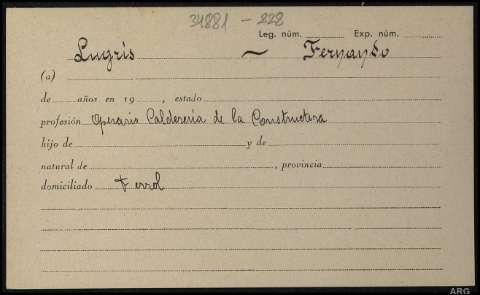 34881 - 228
Leg. núm. Exp. núm.
Lugrís ~ Fernando
(a)
de años en 19 , estado
profesión Operario Calderería de la Constructora
hijo de y de
natural de , provincia
domiciliado Ferrol
ARG